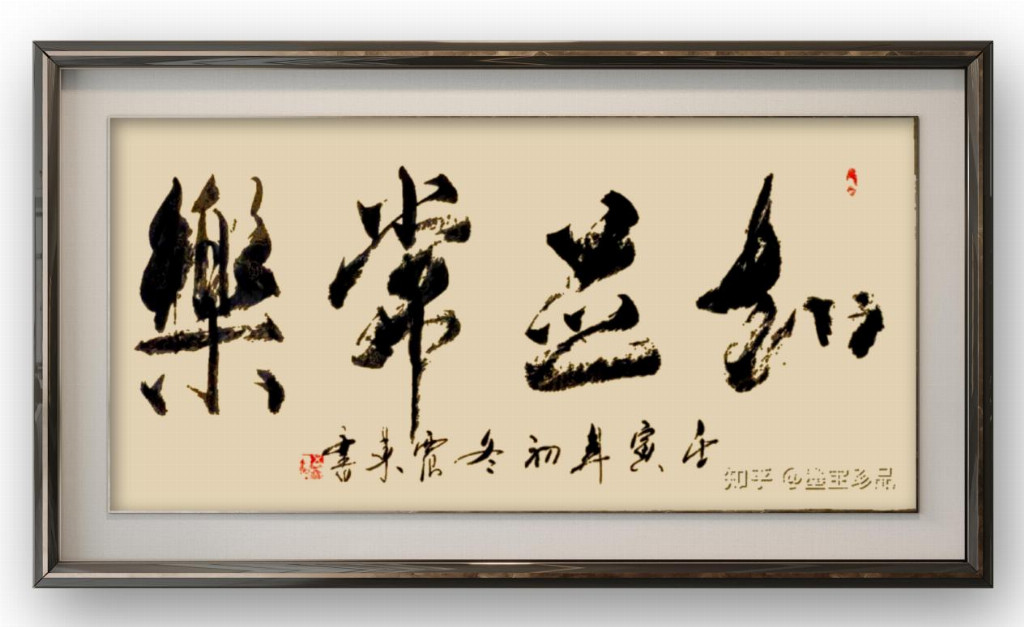 知足常樂
壬寅年初冬震英書
知乎 @墨玉珍品